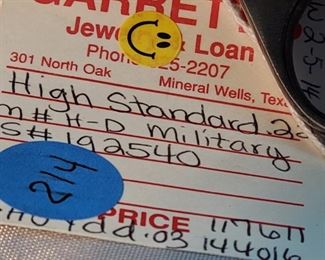 GARRET
Jewe & Loan
Phon 25-2207
301 North Oak Mineral Wells, Texas
High Standard .22
m# H-D Military
S# 192540
214
PRICE 117611
144016